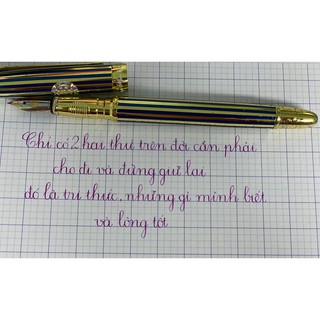 Chỉ có 2 hai thứ trên đời cần phải
cho đi và đừng giữ lại
đó là tri thức, những gì mình biết
và lòng tốt